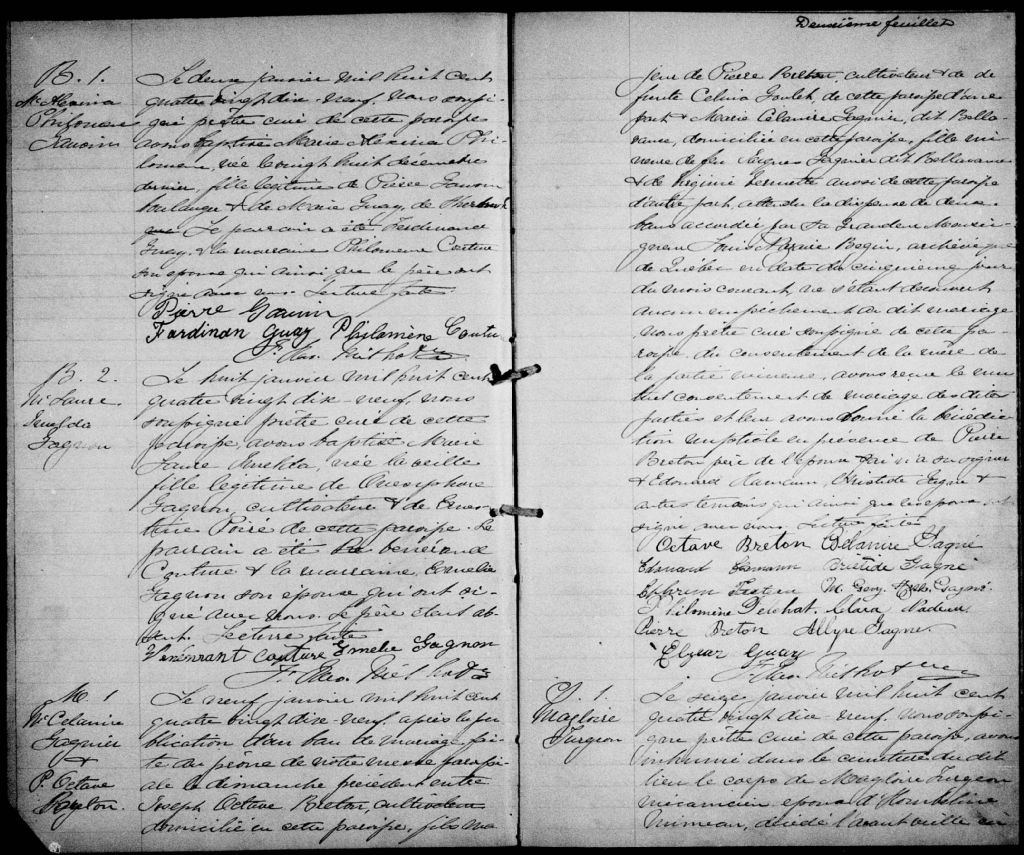 B. 1.
Me Alexina
Philomène
Gauvin
Le deux janvier mil huit cent
quatre vingt dix-neuf, nous soussi-
gné prêtre curé de cette paroisse
avons baptisé Marie Alexina Phi-
lomène, née le vingt huit décembre
dernier, fille légitime de Pierre Gauvin
boulanger & de Marie Guay, de
Le parrain a été Ferdinand
Guay, & la marraine Philomène Couture
son épouse qui ainsi que le père ont
signé avec nous. Lecture faite.
Pierre Gauvin
Fardinan Guay Phylomène Coutu
B. 2.
Me Laure
Gagnon
Le huit janvier mil huit cent
quatre vingt dix-neuf, nous
soussigné prêtre curé de cette
paroisse, avons baptisé Marie
Laure, née la veille
fille légitime de Onésiphore
Gagnon, cultivateur & de
Poiré de cette paroisse. Le
parrain a été
Couture & la marraine,
Gagnon son épouse qui ont si-
gné avec nous. Le père étant ab-
sent. Lecture faite
Vénérant Couture Emelie Gagnon
M. 1
Me Celanire
Gagnier
&
P. Octave
Le neuf janvier mil huit cent
quatre vingt dix-neuf, après la pu-
blication d'un ban de mariage fai-
te au prône de notre messe paroissi-
ale le dimanche précédent entre
Joseph Octave Breton, cultivateur
domicilié en cette paroisse, fils ma
Deuxième feuillet
jeur de Pierre Breton, cultivateur & de
Celina Goulet, de cette paroisse d'une
part & Marie Célanire Gagnier, dit Bella-
vance, domiciliée en cette paroisse, fille mi-
neure de feu Gagnier dit Bellavance
& de Virginie aussi de cette paroisse
d'autre part, attendu la dispense de deux
bans accordée par Sa Grandeur Monsei-
gneur Louis Nazaire Bégin, archevêque
de Québec en date du cinquième jour
du mois courant, ne s'étant découvert
aucun empêchement au dit mariage
nous prêtre curé soussigné de cette pa-
roisse, du consentement de la mère de
la partie mineure, avons reçu le mu-
tuel consentement de mariage des dites
parties et leur avons donné la bénédic-
tion nuptiale en présence de Pierre
Breton père de l'époux qui n'a su signer
& Edouard, Aristide Gagné &
autres témoins qui ainsi que les époux ont
signé avec nous. Lecture faite
Octave Breton Célanire Gagné
Edouard Aristide Gagné
Gagné
Philomène Clara Nadeau
Pierre Breton Allyre Gagne.
Elzear Guay
S. 1.
Magloire
Turgeon
Le seize janvier mil huit cent
quatre vingt dix-neuf, nous soussi-
gné prêtre curé de cette paroisse, avons
inhumé dans le cimetière du dit
lieu le corps de Magloire Turgeon
mécanicien époux d'Hombéline
Mimeau, décédé l'avant veille en